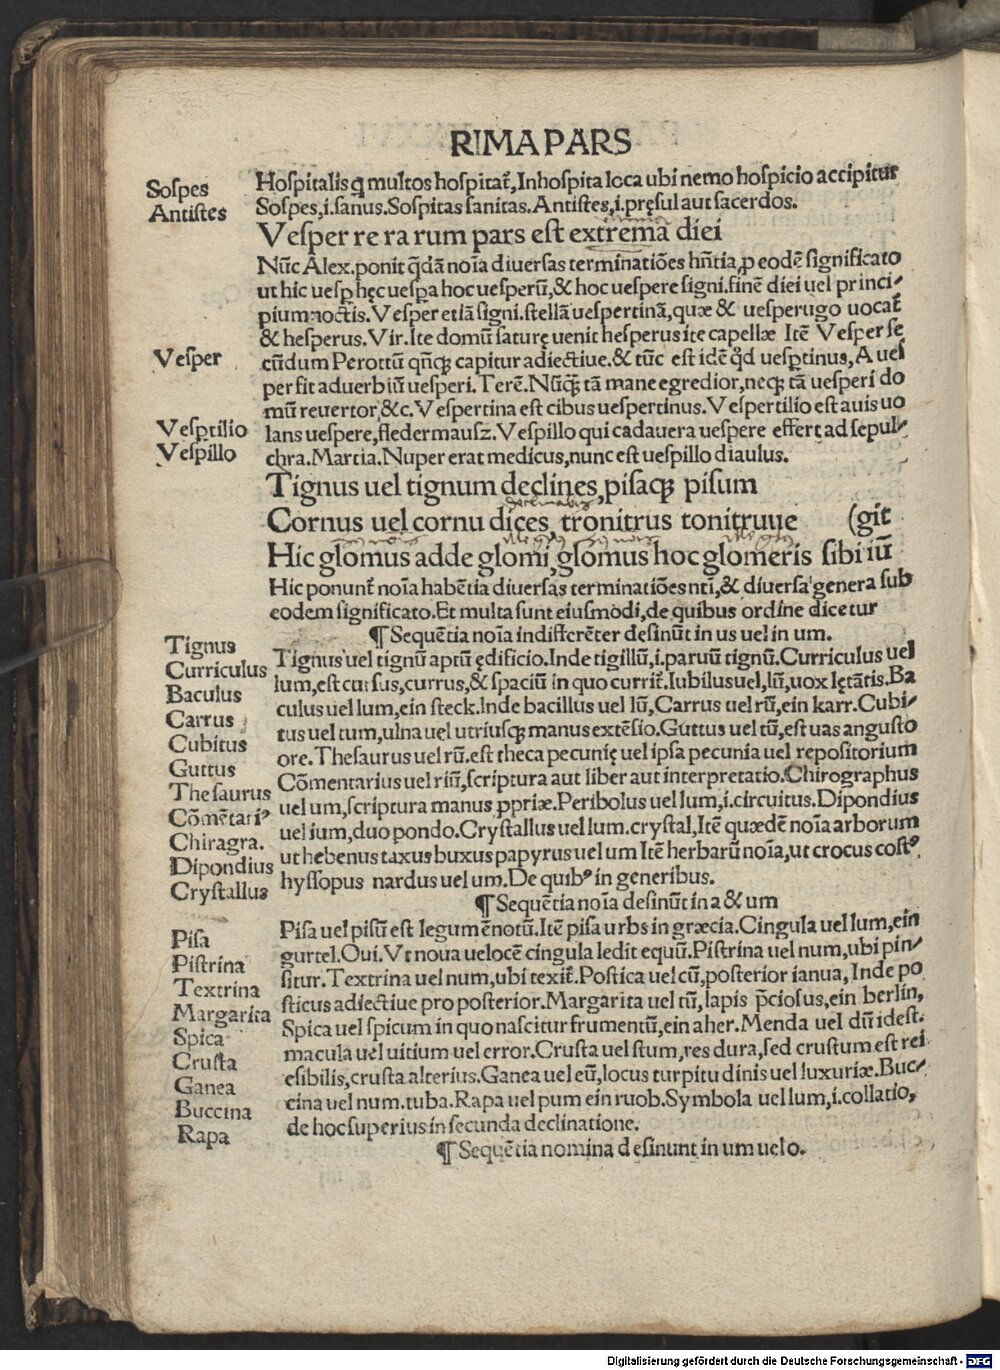 RIMA PARS
Sospes
Antistes
Hospitalis ꝗ multos hospitat̄, Inhospita loca ubi nemo hospicio accipitur
Sospes,.i.sanus.Sospitas sanitas.Antistes,.i.pręsul aut sacerdos.
Vesper re ra rum pars est extrema diei
Nūc Alex.ponit q̄dā noīa diuersas terminatiōes hn̄tia, ꝓ eodē significato
ut hic uesꝑ hęc uesꝑa hoc uesperū,& hoc uespere signi.finē diei uel princi⸗
pium noctis.Vesper etiā signi.stellā uespertinā,quæ & uesperugo uocat̄
& hesperus.Vir.Ite domū saturę uenit hesperus ite capellæ Itē Vesper se
Vesper
cūdum Perottū qn̄qꝫ capitur adiectiue.& tūc est idē qd̄ uesꝑtinus, A uel
per fit aduerbiū uesperi.Terē.Nūqꝫ tā mane egredior,neqꝫ tā uesperi do
mū reuertor,&c.Vespertina est cibus uespertinus.Vespertilio est auis uo
Vesꝑtilio
Vespillo
lans uespere,fledermausz.Vespillo qui cadauera uespere effert ad sepul⸗
chra.Martia.Nuper erat medicus,nunc est uespillo diaulus.
Tignus uel tignum declines,pisaqꝫ pisum
Cornus uel cornu dices, tronitrus tonitruue (git
Hic glomus adde glomi,glomus hoc glomeris sibi iū
Hic ponunt̄ noīa habētia diuersas terminatiōes ntī,& diuersa genera sub
eodem significato.Et multa sunt eiusmodi,de quibus ordine dicetur
¶ Sequētia noīa indifferēter desinūt in us uel in um.
Tignus
Curriculus
Baculus
Carrus
Cubitus
Guttus
Thesaurus
Cōmētariꝰ
Chiragra.
Dipondius
Crystallus
Tignus uel tignū aptū ędificio.Inde tigillū,.i.paruū tignū.Curriculus uel
lum,est cursus,currus,& spaciū in quo currit̄.Iubilus uel,lū,uox lętātis.Ba
culus uel lum,ein steck.Inde bacillus uel lū,Carrus uel rū,ein karr.Cubi⸗
tus uel tum,ulna uel utriusqꝫ manus extēsio.Guttus uel tū,est uas angusto
ore.Thesaurus uel rū.est theca pecunię uel ipsa pecunia uel repositorium
Cōmentarius uel riū,scriptura aut liber aut interpretatio.Chirographus
uel um,scriptura manus ꝓpriæ.Peribolus uel lum,.i.circuitus.Dipondius
uel ium,duo pondo.Crystallus uel lum.crystal,Itē quædē noīa arborum
ut hebenus taxus buxus papyrus uel um Itē herbarū noīa,ut crocus costꝰ,
hyssopus nardus uel um.De quibꝰ in generibus.
¶ Sequētia noīa desinūt in a & um
Pisa
Pistrina
Textrina
Margarita
Spica
Crusta
Ganea
Buccina
Rapa
Pisa uel pisū est legum ēnotū.Itē pisa urbs in græcia.Cingula uel lum,ein
gurtel.Oui.Vt noua uelocē cingula ledit equū.Pistrina uel num,ubi pin⸗
situr.Textrina uel num,ubi texit̄.Postica uel cū,posterior ianua, Inde po
sticus adiectiue pro posterior.Margarita uel tū,lapis p̄ciosus,ein berlin,
Spica uel spicum in quo nascitur frumentū,ein aher.Menda uel dū idest.
macula uel uitium uel error.Crusta uel stum,res dura,sed crustum est rei
esibilis,crusta alterius.Ganea uel eū,locus turpitudinis uel luxuriæ.Buc⸗
cina uel num.tuba.Rapa uel pum ein ruob.Symbola uel lum,.i.collatio,
de hoc superius in secunda declinatione.
¶ Sequētia nomina desinunt in um uel o.
Digitalisierung gefördert durch die Deutsche Forschungsgemeinschaft - DFG